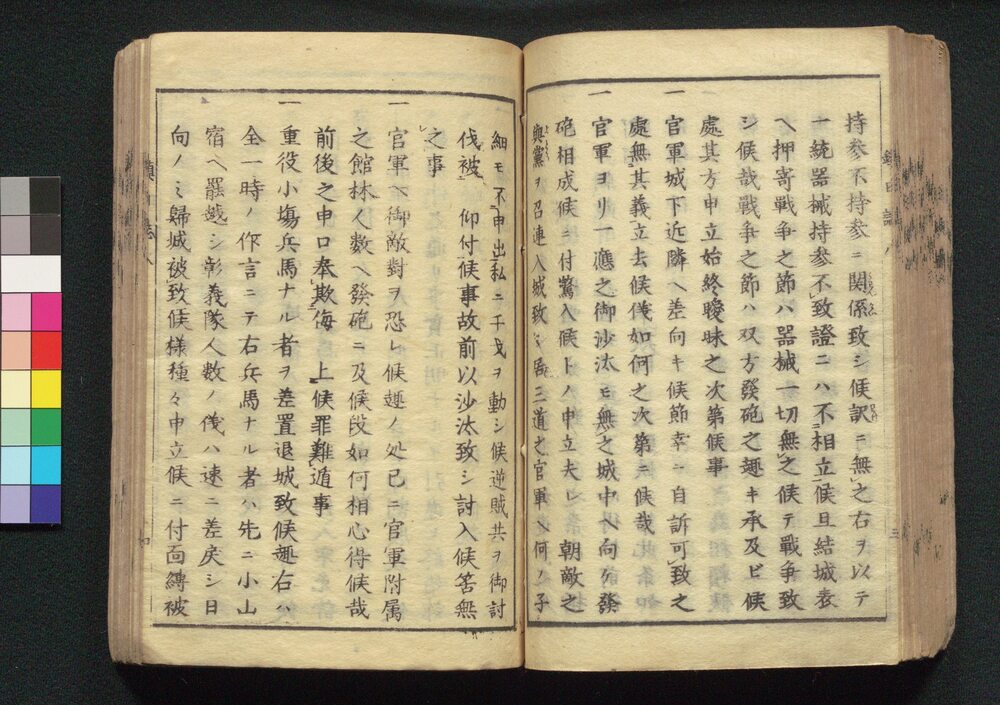 持参不持参ニ関係致シ候訳ニ無之右ヲ以テ
一統器械持参不致證ニハ不相立候且結城表
ヘ押寄戦争之節ハ器械一切無之候テ戦争致
シ候哉戦争之節ハ双方發砲之趣キ承及ビ候
處其方申立始終曖昧之次第候事
一官軍城下近隣ヘ差向キ候節幸ニ自訴可致之
處無其義立去候儀如何之次第ニ候哉
一官軍ヨリ一應之御沙汰モ無之城中ヘ向ケ發
砲相成候ニ付驚入候トノ申立夫レ朝敵之
與黨ヲ召連入城致シ居三道之官軍ヘ何ノ子
細モ不申出私ニ干戈ヲ動シ候逆賊共ヲ御討
伐被仰付候事故前以沙汰致シ討入候筈無
之事
一官軍ヘ御敵對ヲ恐レ候趣ノ処已ニ官軍附属
之館林人数ヘ發砲ニ及候段如何相心得候哉
前後之申口奉欺侮上候罪難遁事
一重役小塲兵馬ナル者ヲ差置退城致候趣右ハ
全一時ノ作言ニテ右兵馬ナル者ハ先ニ小山
宿ヘ罷越シ彰義隊人数ノ儀ハ速ニ差戻シ日
向ノミ歸城被致候様種々申立候ニ付面縛被